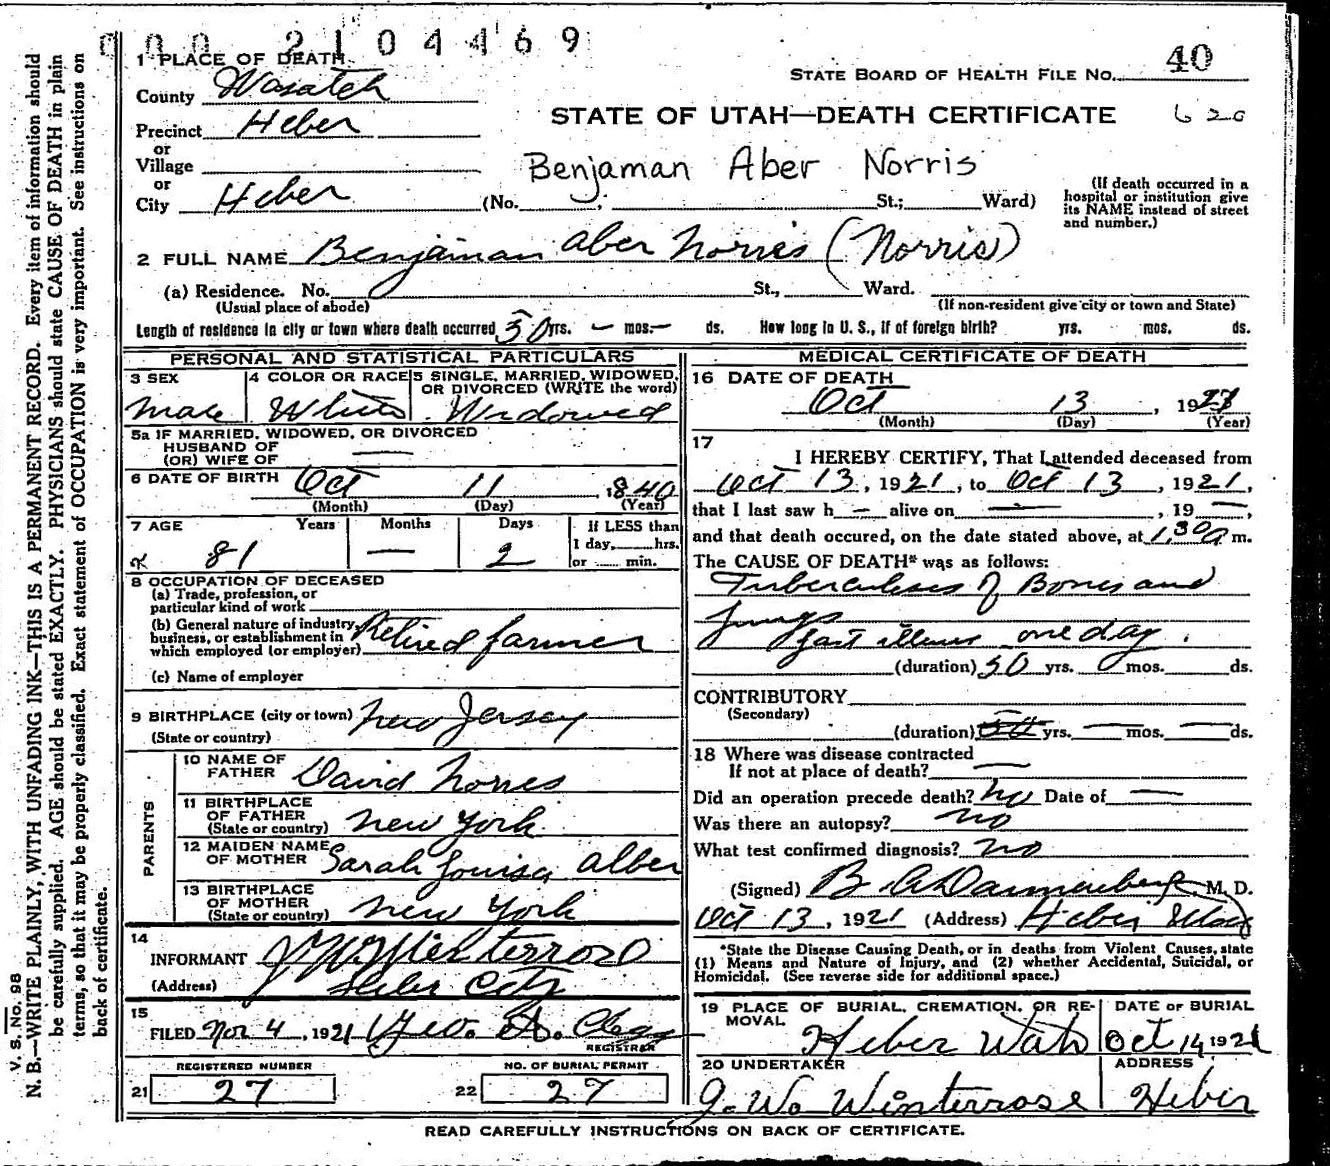 000 2104469
1 PLACE OF DEATH
County Wasatch
Precinct Heber
or
Village
or
City Heber (No. ; St.; Ward)
STATE BOARD OF HEALTH FILE NO. 40
STATE OF UTAH—DEATH CERTIFICATE 620
Benjaman Aber Norris
(If death occurred in a
hospital or institution give
its NAME instead of street
and number.)
2 FULL NAME Benjaman Aber Norris (Norris)
(a) Residence. No. St., Ward.
(Usual place of abode) (If non-resident give city or town and State)
Length of residence in city or town where death occurred 50 yrs. — mos. — ds. How long in U. S., if of foreign birth? yrs. mos. ds.
PERSONAL AND STATISTICAL PARTICULARS
3 SEX 4 COLOR OR RACE 5 SINGLE, MARRIED, WIDOWED,
OR DIVORCED (WRITE the word)
Male White Widowed
5a IF MARRIED, WIDOWED, OR DIVORCED
HUSBAND OF
(OR) WIFE OF —
6 DATE OF BIRTH Oct 11, 1840
(Month) (Day) (Year)
7 AGE Years Months Days If LESS than
1 day, hrs.
81 — 2 or min.
8 OCCUPATION OF DECEASED
(a) Trade, profession, or
particular kind of work
(b) General nature of industry,
business, or establishment in
which employed (or employer) Retired farmer
(c) Name of employer
9 BIRTHPLACE (city or town) New Jersey
(State or country)
PARENTS
10 NAME OF
FATHER David Norres
11 BIRTHPLACE
OF FATHER
(State or country) New York
12 MAIDEN NAME
OF MOTHER Sarah Louisa Alber
13 BIRTHPLACE
OF MOTHER
(State or country) New York
14
INFORMANT J W Winterroso
(Address) Heber City
15
FILED Nov 4, 1921 Geo. A. Clegg
REGISTRAR
REGISTERED NUMBER NO. OF BURIAL PERMIT
21 27 22 27
MEDICAL CERTIFICATE OF DEATH
16 DATE OF DEATH
Oct 13, 1921
(Month) (Day) (Year)
17
I HEREBY CERTIFY, That I attended deceased from
Oct 13, 1921, to Oct 13, 1921,
that I last saw h — alive on — , 19 —,
and that death occured, on the date stated above, at 1,30 a m.
The CAUSE OF DEATH* was as follows:
Tuberculoses of Bones and
Lungs
last illness one day.
(duration) 50 yrs. 0 mos. ds.
CONTRIBUTORY
(Secondary)
(duration) yrs. — mos. — ds.
18 Where was disease contracted
If not at place of death? —
Did an operation precede death? no Date of —
Was there an autopsy? no
What test confirmed diagnosis? no
(Signed) B A Dannenberg, M. D.
Oct 13, 1921 (Address) Heber Utah
*State the Disease Causing Death, or in deaths from Violent Causes, state
(1) Means and Nature of Injury, and (2) whether Accidental, Suicidal, or
Homicidal. (See reverse side for additional space.)
19 PLACE OF BURIAL, CREMATION, OR RE-
MOVAL Heber Utah
DATE OF BURIAL
Oct 14 1921
20 UNDERTAKER ADDRESS
J. W. Winterrose Heber
READ CAREFULLY INSTRUCTIONS ON BACK OF CERTIFICATE.
V. S. No. 98
N. B.—WRITE PLAINLY, WITH UNFADING INK—THIS IS A PERMANENT RECORD. Every item of information should
be carefully supplied. AGE should be stated EXACTLY. PHYSICIANS should state CAUSE OF DEATH in plain
terms, so that it may be properly classified. Exact statement of OCCUPATION is very important. See instructions on
back of certificate.